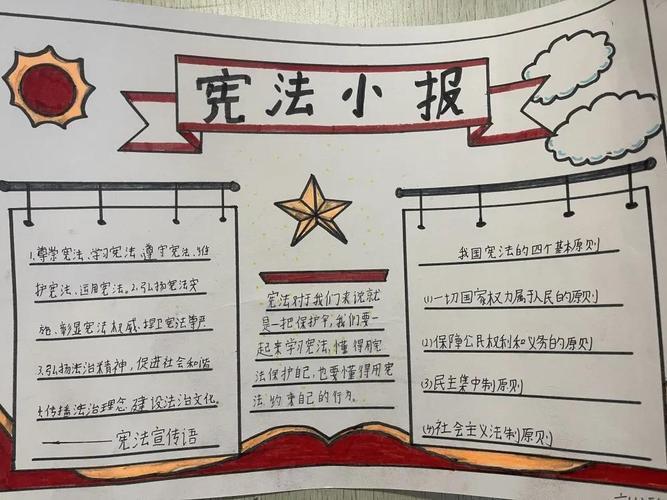 宪法小报
1.尊崇宪法、学习宪法、遵守宪法、维
护宪法、运用宪法。2.弘扬宪法实
施、彰显宪法权威、捍卫宪法尊严
3.弘扬法治精神，促进社会和谐
4.传播法治理念 建设法治文化。
——宪法宣传语
宪法对于我们来说就
是一把保护伞，我们要一
起来学习宪法，懂得用宪
法保护自己，也要懂得用宪
法 约束自己的行为。
我国宪法的四个基本原则
(1)一切国家权力属于人民的原则
(2)保障公民权利和义务的原则
(3)民主集中制原则
(4)社会主义法制原则